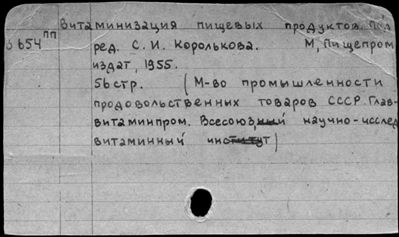 Витаминизация пищевых продуктов. Под
Б654пп ред. С. И. Королькова. М, Пищепром
издат, 1955.
56 стр. (М-во промышленности
продовольственных товаров СССР. Глав-
витаминпром. Всесоюзный научно-исслед.
витаминный институт)